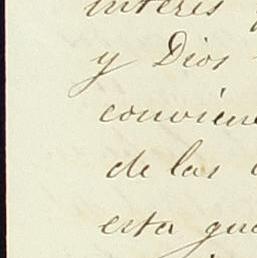 interes
y Dios
convien
de las
esta gu